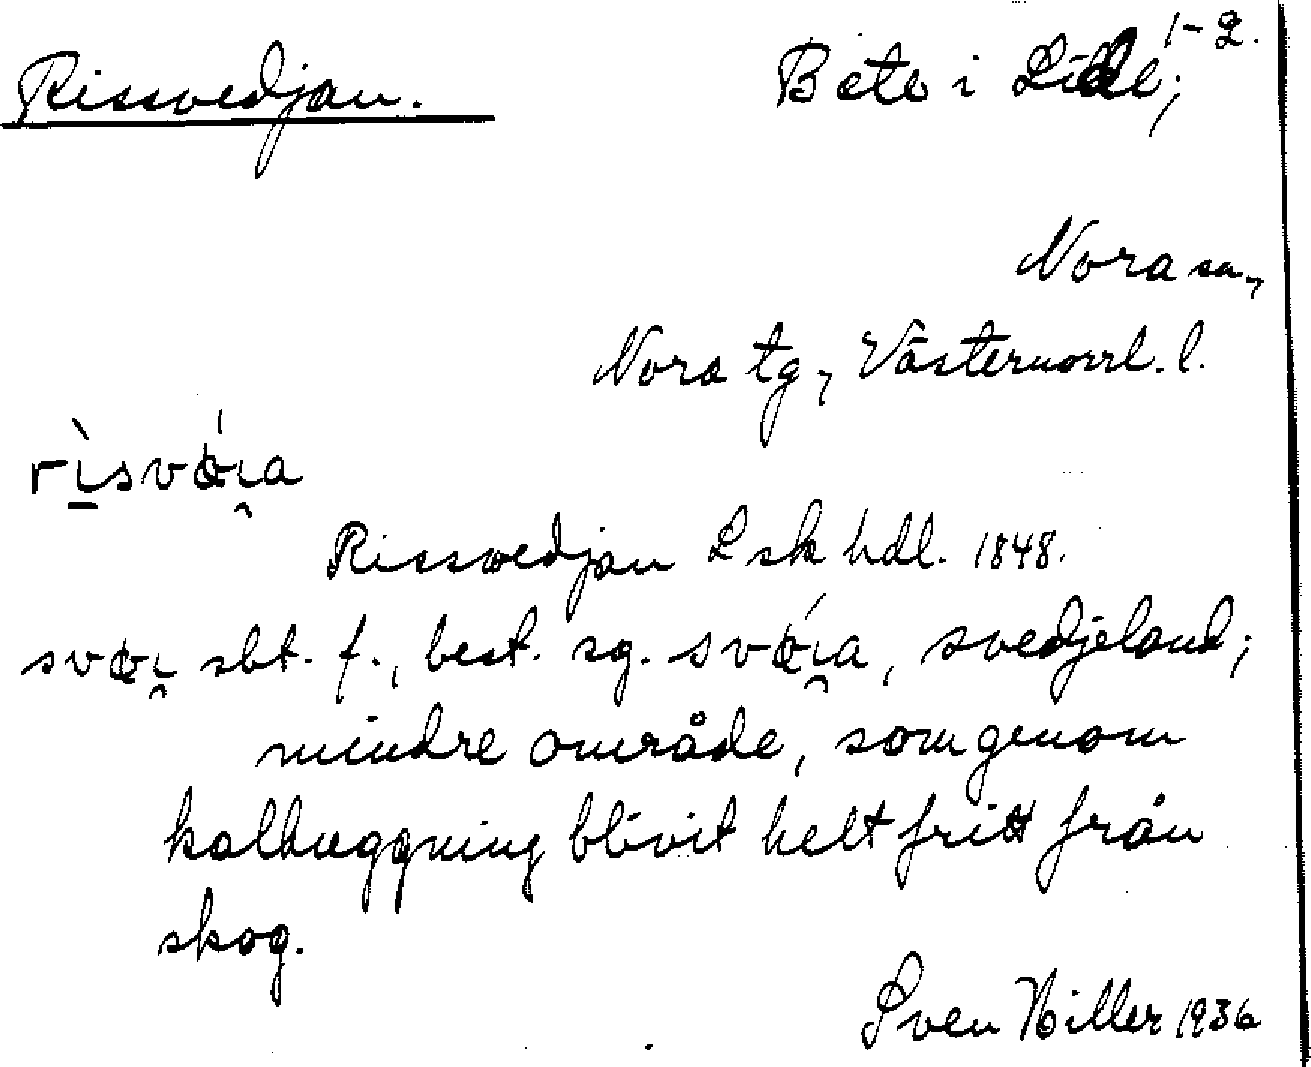 Rissvedjan. Bete i Lidl, 1-2.
Nora sn,
Nora tg, Västernorrl. l.
rìsvǿi̯a
Rissvedjan L sk hdl. 1848.
svøi̯ sbt. f., best. sg. svǿi̯a, svedjeland;
mindre område, som genom
kalhuggning blivit helt fritt från
skog.
Sven Hiller 1936